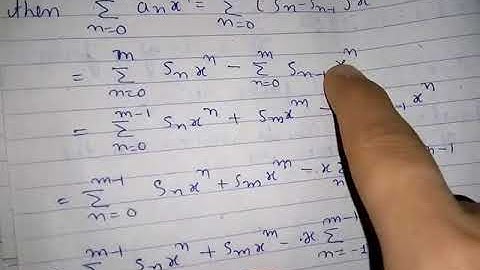 then \sum_{n=0}^{m} a_n x^n = \sum_{n=0}^{m} (S_n - S_{n-1}) x^n
= \sum_{n=0}^{m} S_n x^n - \sum_{n=0}^{m} S_{n-1} x^n
= \sum_{n=0}^{m-1} S_n x^n + S_m x^m - x^n
= \sum_{n=0}^{m-1} S_n x^n + S_m x^m - x
\sum^{m-1} S_n x^n + S_m x^m - x \sum_{n=-1}^{m-1}